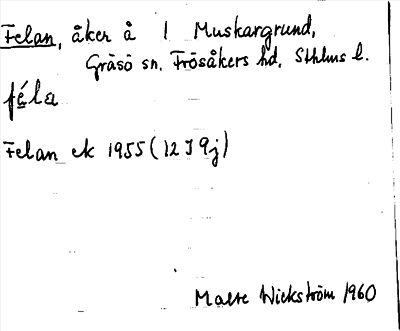 Felan, åker å 1 Muskargrund,
Gräsö sn. Frösåkers hd, Sthlms l.
féla
Felan ek 1955 (12 I 9j)
Malte Wickström 1960